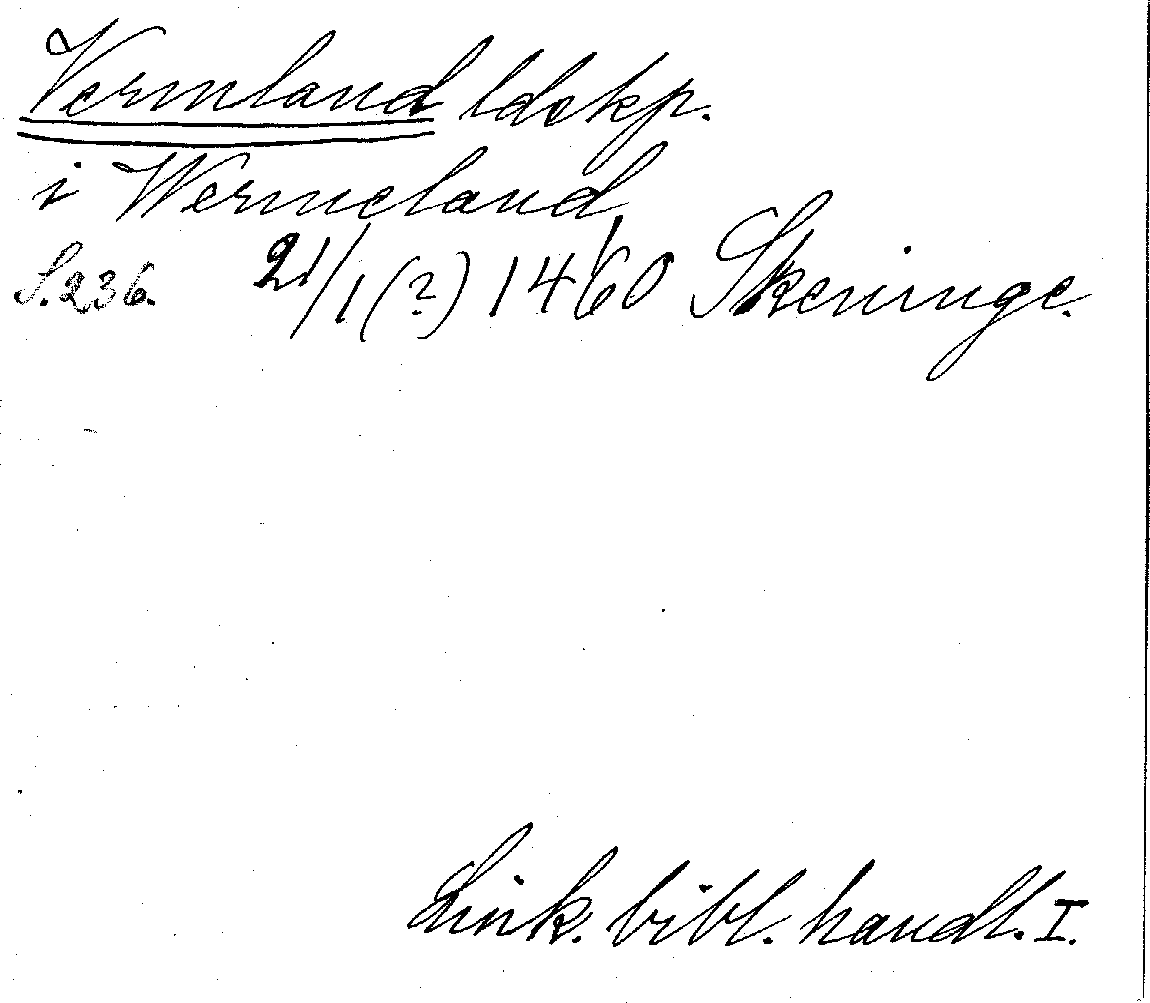 Vermland ldskp.
i Werneland
S. 236. 21/1 (?) 1460 Skeninge.
Link. bibl. handl. I.